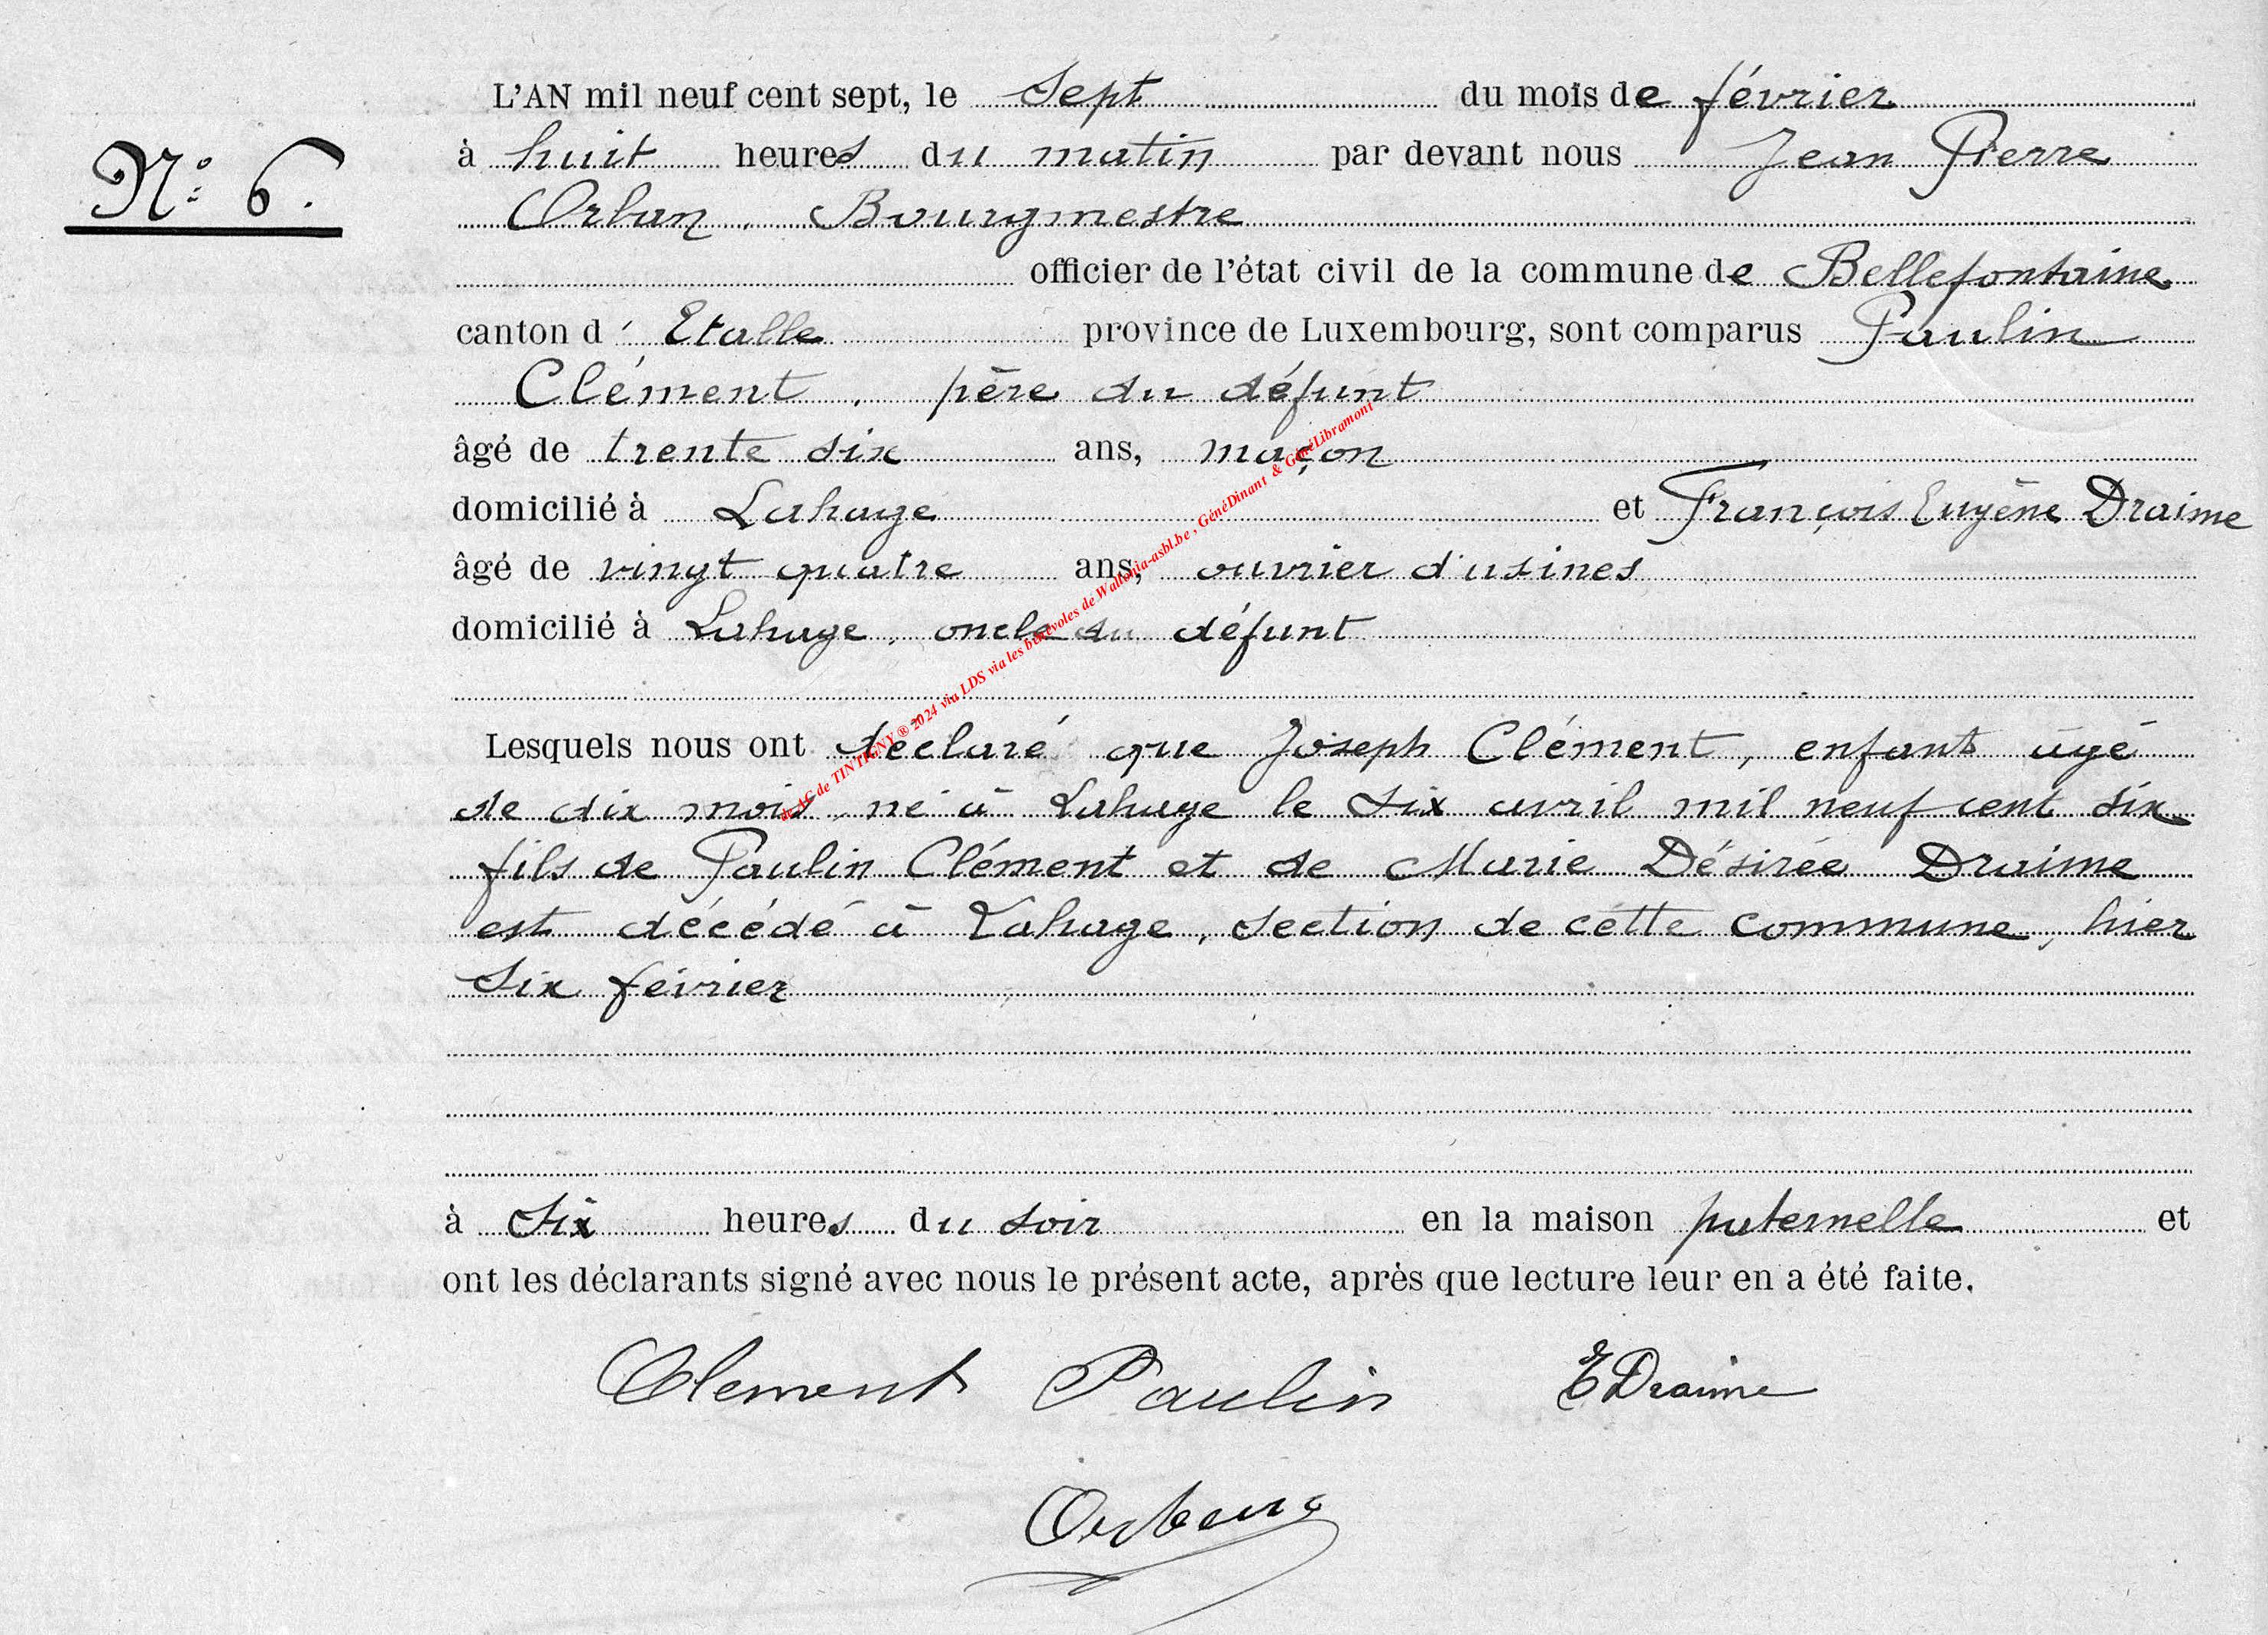 N° 6.
L'AN mil neuf cent sept, le sept du mois de février
à huit heures du matin par devant nous Jean Pierre
Orban, Bourgmestre
officier de l'état civil de la commune de Bellefontaine
canton d'Etalle province de Luxembourg, sont comparus Paulin
Clément, père du défunt
âgé de trente six ans, maçon
domicilié à Lahage et François Eugène Draime
âgé de vingt quatre ans, ouvrier d'usines
domicilié à Lahage, oncle du défunt
Lesquels nous ont déclaré que Joseph Clément, enfant âgé
de dix mois, né à Lahage le six avril mil neuf cent six
fils de Paulin Clément et de Marie Désirée Draime
est décédé à Lahage, section de cette commune, hier
six février
à six heures du soir en la maison paternelle et
ont les déclarants signé avec nous le présent acte, après que lecture leur en a été faite.
Clement Paulin EDraime
Orban
de AC de TINTIGNY ® 2024 via LDS via les bénévoles de Wallonia-asbl.be, GénéDinant & GénéLibramont